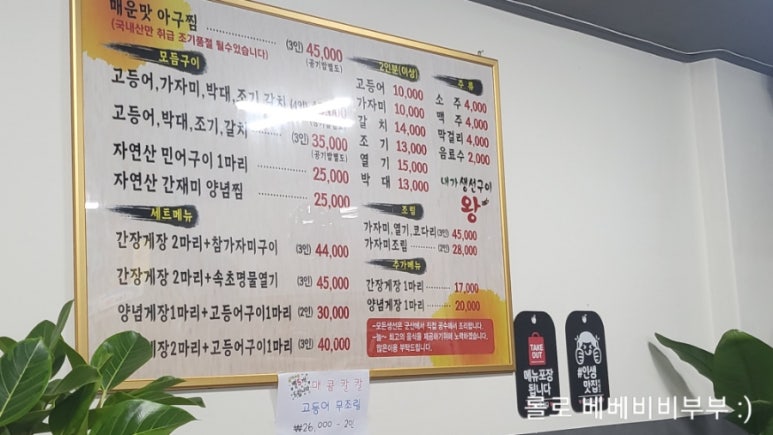 매운맛 아구찜 (3인) 45,000
(국내산만 취급 조기품절 될수있습니다) (공기밥별도)
모듬구이
고등어,가자미,박대,조기,갈치 (4인)
고등어,박대,조기,갈치 (3인) 35,000
(공기밥별도)
자연산 민어구이 1마리 25,000
자연산 간재미 양념찜 25,000
세트메뉴
간장게장 2마리+참가자미구이 (3인) 44,000
간장게장 2마리+속초명물열기 (3인) 45,000
양념게장1마리+고등어구이1마리 (2인) 30,000
게장2마리+고등어구이1마리 (3인) 40,000
2인분(이상)
고등어 10,000
가자미 10,000
갈 치 14,000
조 기 13,000
열 기 15,000
박 대 13,000
주 류
소 주 4,000
맥 주 4,000
막걸리 4,000
음료수 2,000
내가 생선구이
왕
조림
가자미,열기,코다리(3인) 45,000
가자미조림 (2인) 28,000
추가메뉴
간장게장 1마리 17,000
양념게장 1마리 20,000
-모든생선은 군산에서 직접 공수해서 조리합니다.
-늘~ 최고의 음식을 제공하기위해 노력하겠습니다.
많은이용 부탁드립니다.
매콤칼칼
고등어 무조림
₩26,000 - 2인
TAKE
OUT
메뉴포장
됩니다
#인생
맛집
롤로 베베비비부부 :)